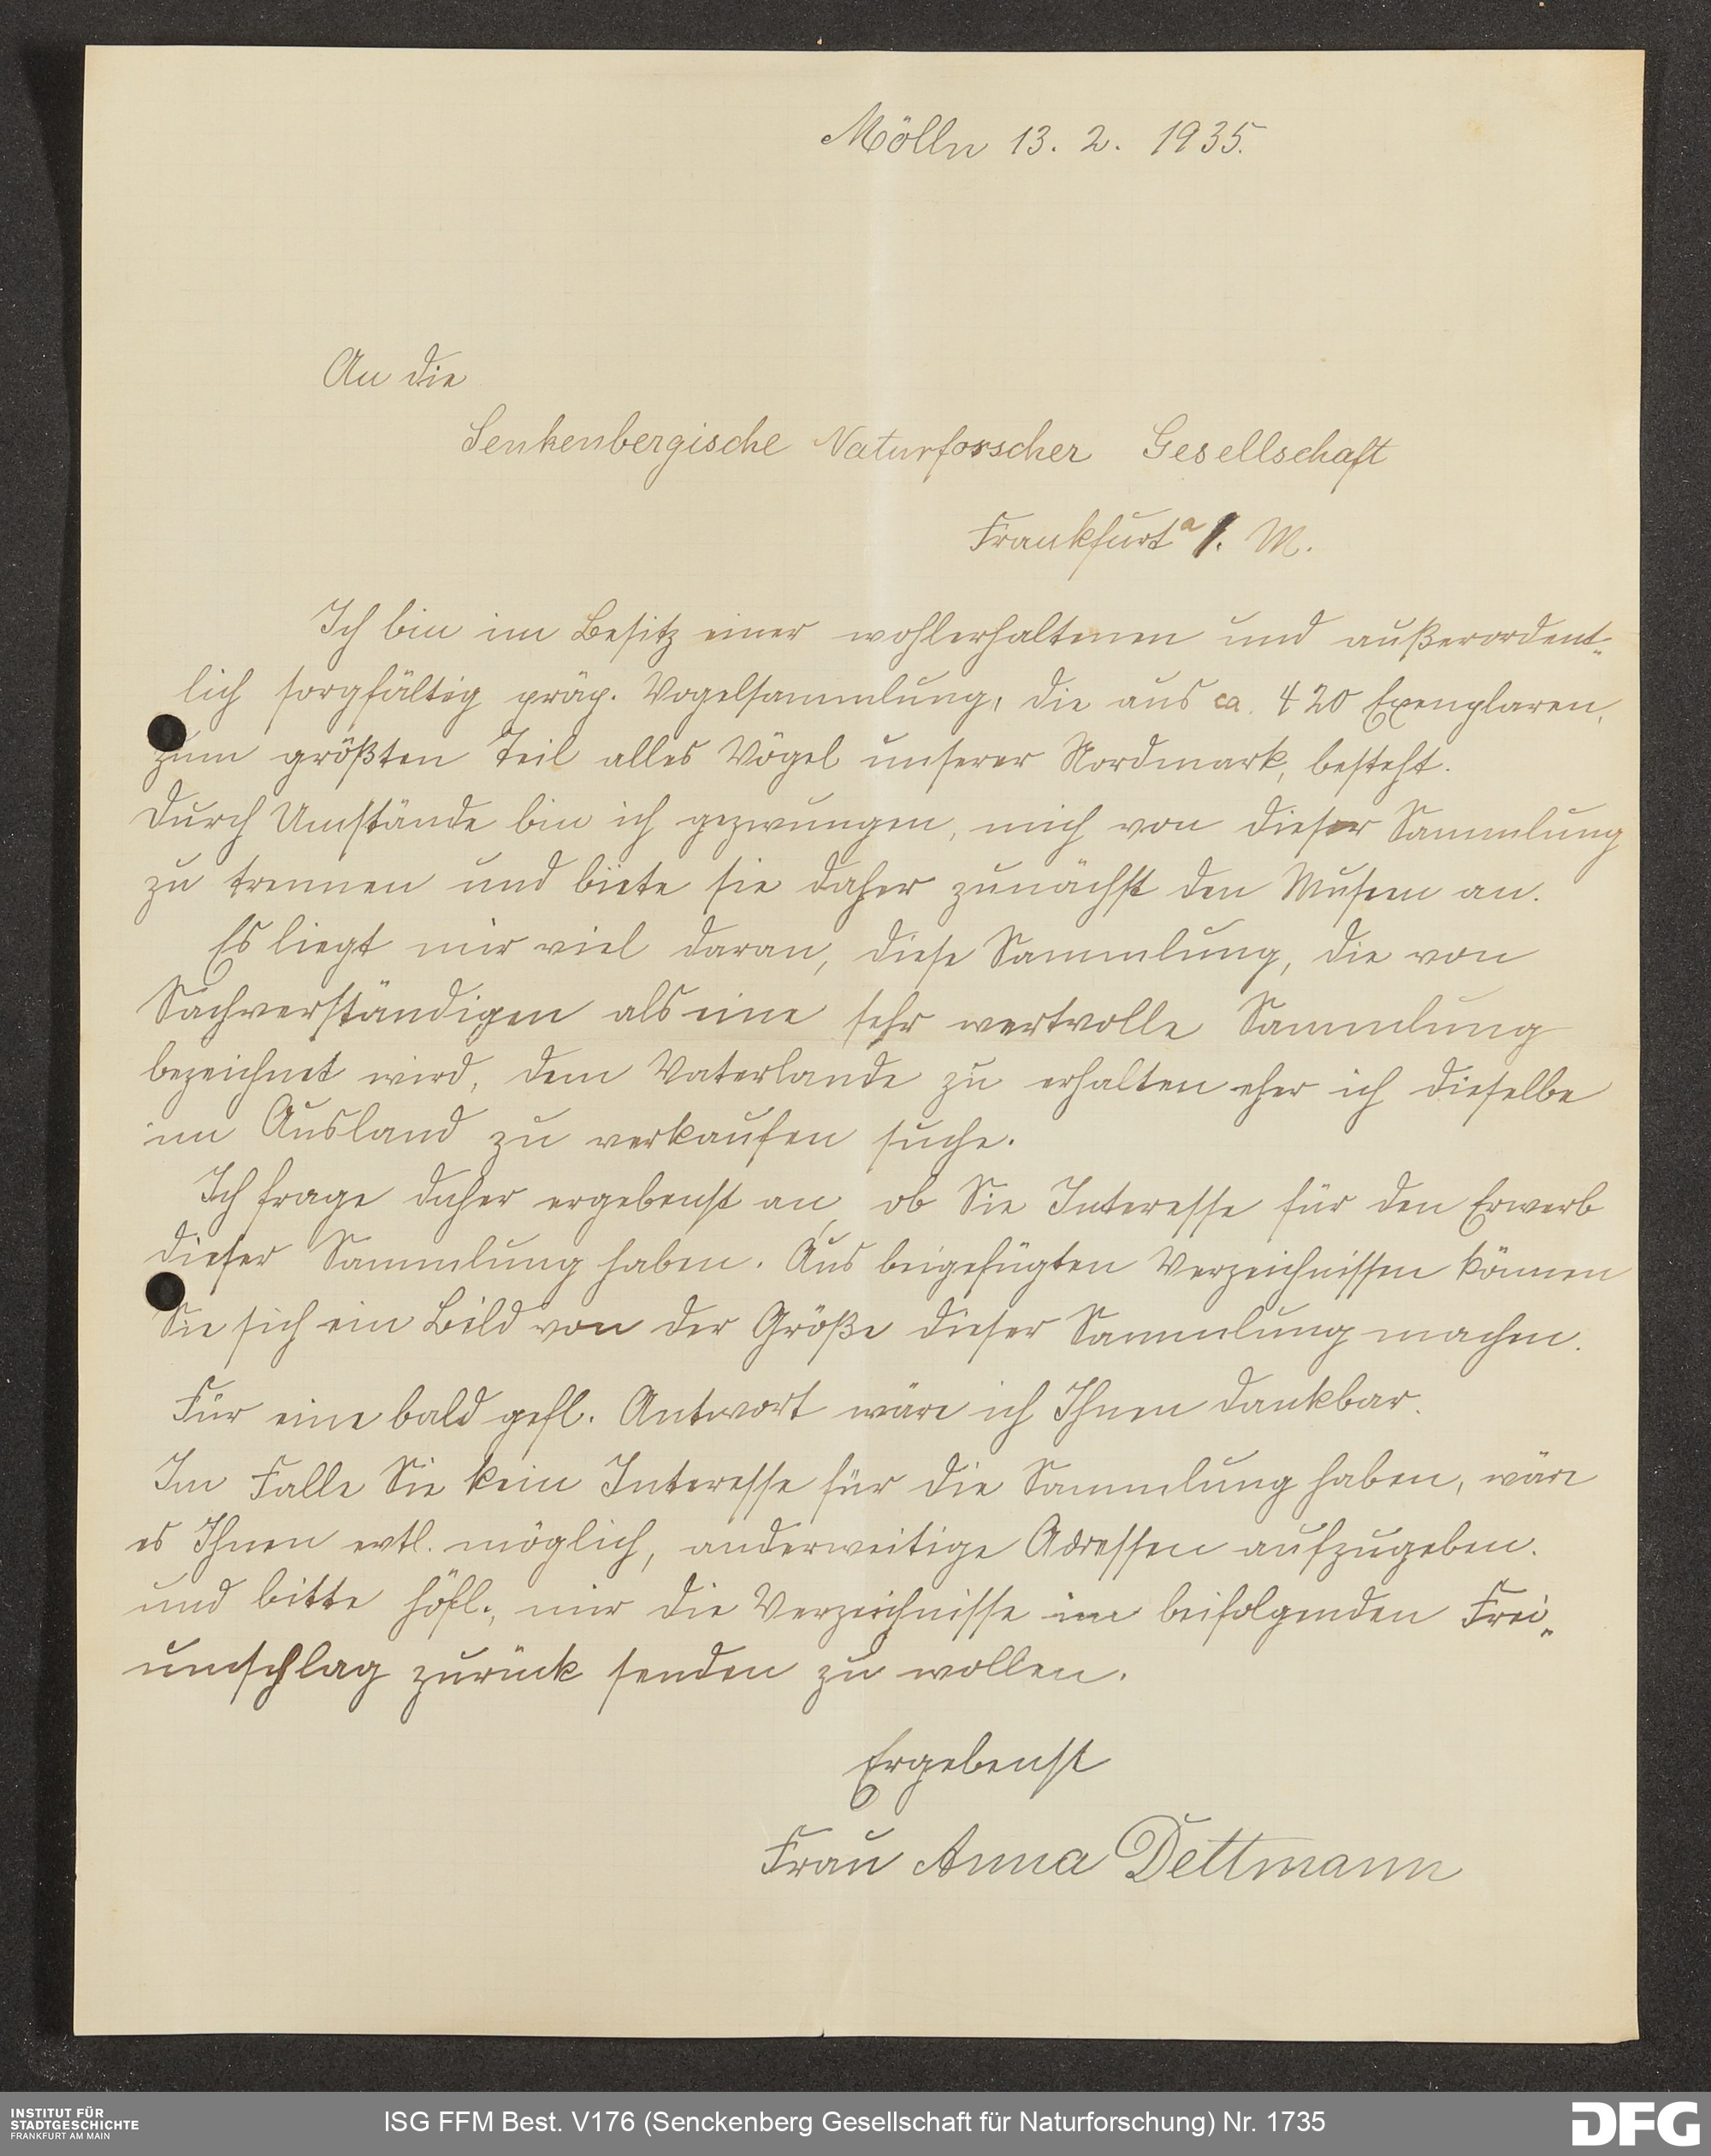 Mölln 13. 2. 1935.
An die
Senkenbergische Naturforscher Gesellschaft
Frankfurt a/. M.
Ich bin im Besitz einer wohlerhaltenen und außerordent-
lich sorgfältig präp. Vogelsammlung, die aus ca. 420 Exemplaren,
zum größten Teil alles Vögel unserer Nordmark, besteht.
Durch Umstände bin ich gezwungen, mich von dieser Sammlung
zu trennen und biete sie daher zunächst den Museen an.
Es liegt mir viel daran, diese Sammlung, die von
Sachverständigen als eine sehr wertvolle Sammlung
bezeichnet wird, dem Vaterlande zu erhalten eher ich dieselbe
im Ausland zu verkaufen suche.
Ich frage daher ergebenst an, ob Sie Interesse für den Erwerb
dieser Sammlung haben. Aus beigefügten Verzeichnissen können
Sie sich ein Bild von der Größe dieser Sammlung machen.
Für eine bald gefl. Antwort wäre ich Ihnen dankbar.
Im Falle Sie kein Interesse für die Sammlung haben, wäre
es Ihnen evtl. möglich, anderweitige Adressen aufzugeben.
und bitte höfl., mir die Verzeichnisse im beifolgenden Frei-
umschlag zurück senden zu wollen.
Ergebenst
Frau Anna Dettmann
INSTITUT FÜR
STADTGESCHICHTE
FRANKFURT AM MAIN
ISG FFM Best. V176 (Senckenberg Gesellschaft für Naturforschung) Nr. 1735
DFG